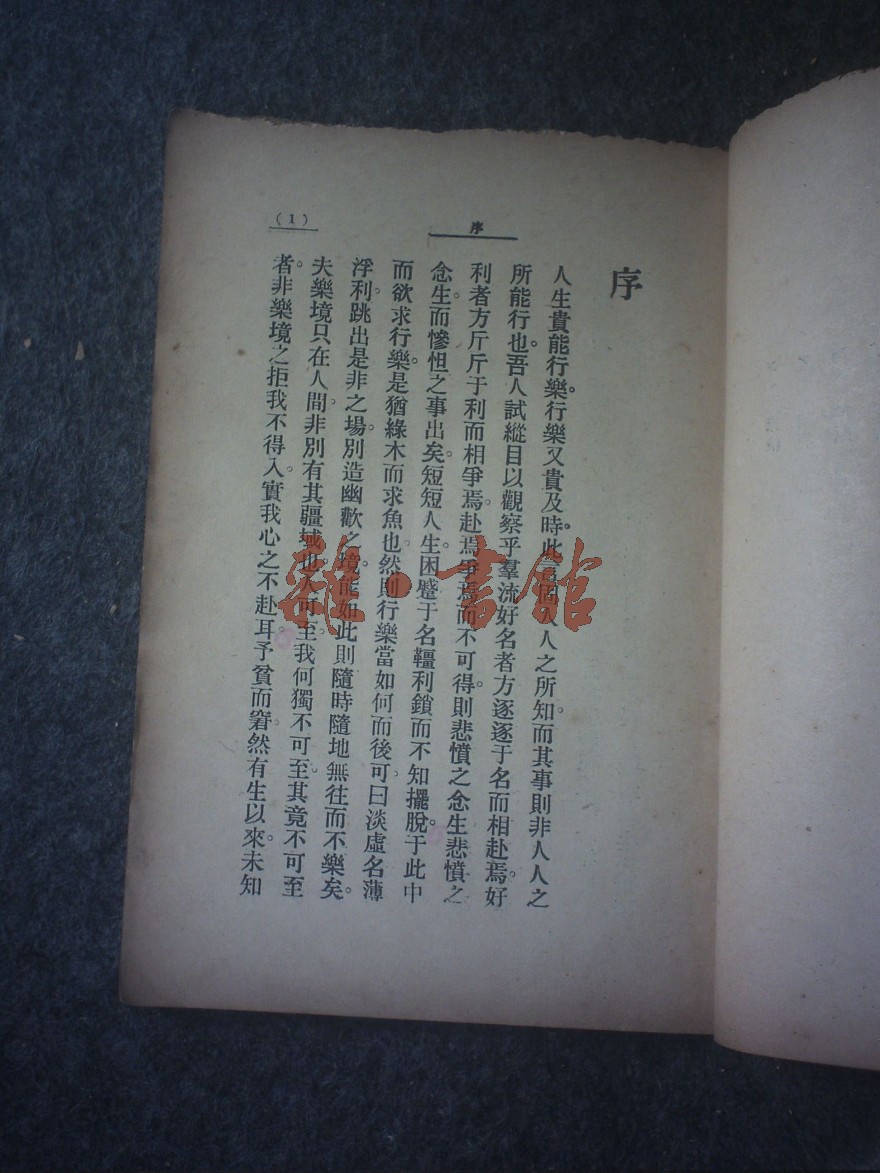 序
(1)
序
人生貴能行樂。行樂又貴及時。此固人人之所知。而其事則非人人之
所能行也。吾人試縱目以觀察乎羣流好名者方逐逐于名而相赴焉。好
利者方斤斤于利而相爭焉。赴焉爭焉而不可得。則悲憤之念生悲憤之
念生。而慘怛之事出矣。短短人生。困蹙于名韁利鎖而不知擺脫。于此中
而欲求行樂。是猶綠木而求魚也。然則行樂當如何而後可。曰淡虛名薄
浮利。跳出是非之場。別造幽歡之境。能如此則隨時隨地無往而不樂矣。
夫樂境只在人間。非別有其疆域也。人可至。我何獨不可至。其竟不可至
者。非樂境之拒我不得入。實我心之不赴耳。予貧而窘。然有生以來。未知
雜·書館